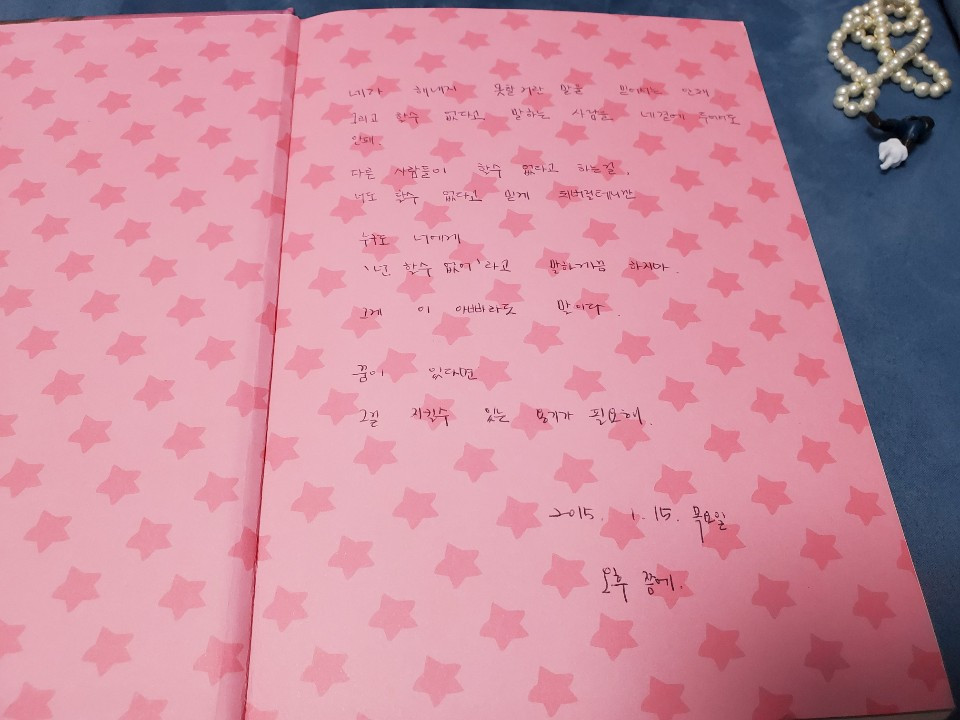 네가 해내지 못할거란 말을 믿어서는 안돼
그리고 할수 없다고 말하는 사람을 네곁에 두어서도
안돼.
다른 사람들이 할수 없다고 하는걸,
너도 할수 없다고 믿게 돼버릴테니깐
누구도 너에게
'넌 할수 없어'라고 말하게끔 하지마.
그게 이 아빠라도 말이다.
꿈이 있다면
그걸 지킬수 있는 용기가 필요해.
2015. 1. 15. 목요일
오후 쯤에.